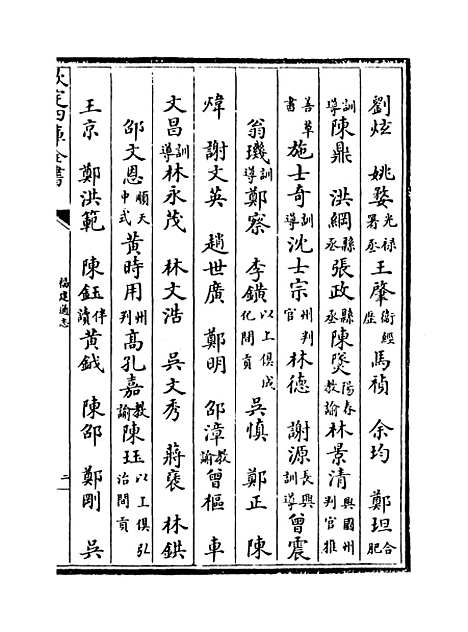 劉炫 姚婺光禄署丞王肇衛經歷馬禎 余均 鄭坦合肥
訓導陳鼎 洪綱縣丞張政縣丞陳煲陽春教諭林景清興國州判官推
善草書施士奇訓導沈士宗州判官林德 謝源長興訓導曾震
翁璣訓導鄭察 李鐄以上俱成化間貢吳慎 鄭正 陳
煒 謝文英 趙世廣 鄭明 邵漳教諭曾樞 車
文昌訓導林永茂 林文浩 吳文秀 蔣褒 林鉷
邵文恩順天中式黃時用州判高孔嘉教諭陳珏以上俱弘治間貢
王京 鄭洪範 陳鈺伴讀黃鉞 陳邵 鄭剛 吳
欽定四庫全書
福建通志
二